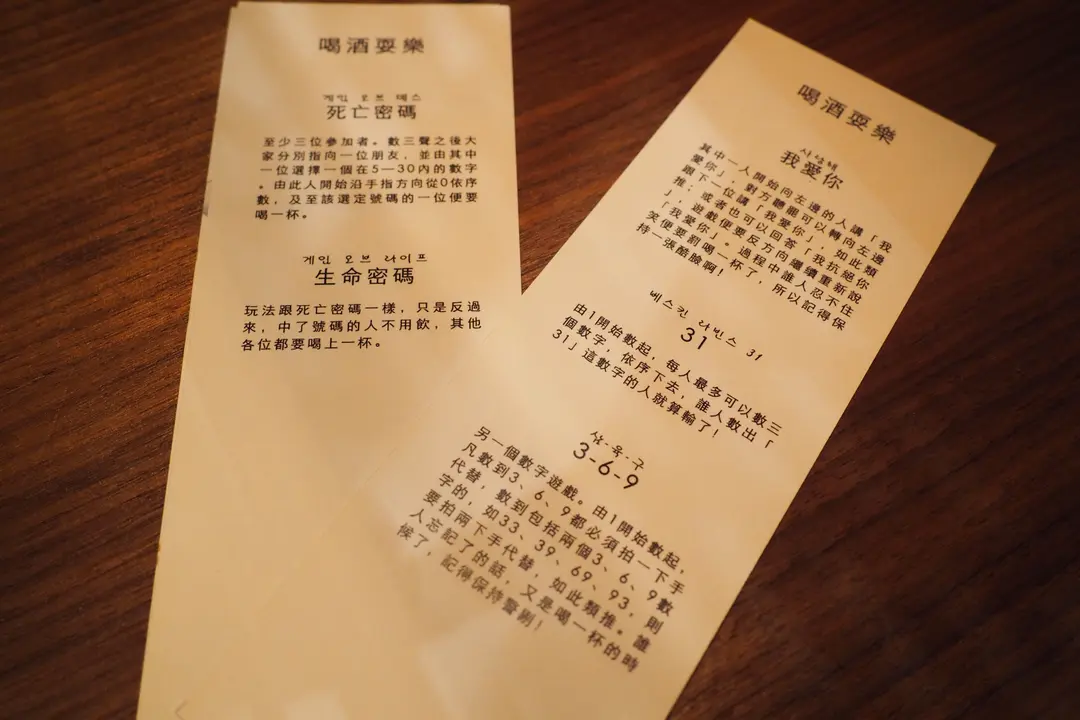 喝酒耍樂
게임 오브 데스
死亡密碼
至少三位參加者。數三聲之後大
家分別指向一位朋友，並由其中
一位選擇一個在5—30內的數字
。由此人開始沿手指方向從0依序
數，及至該選定號碼的一位便要
喝一杯。
게임 오브 라이프
生命密碼
玩法跟死亡密碼一樣，只是反過
來，中了號碼的人不用飲，其他
各位都要喝上一杯。
喝酒耍樂
사랑해
我愛你
其中一人開始向左邊的人講「我
愛你」，對方聽罷可以轉向左邊
跟下一位講「我愛你」，如此類
推；或者也可以回答「我抗絕你
」，遊戲便要反方向繼續重新說
「我愛你」。過程中誰人忍不住
笑便要罰喝一杯了，所以記得保
持一張酷臉啊！
베스킨 라빈스 31
31
由1開始數起，每人最多可以數三
個數字，依序下去，誰人數出「
31」這數字的人就算輸了！
삼-육-구
3-6-9
另一個數字遊戲。由1開始數起，
凡數到3、6、9都必須拍一下手
代替，數到包括兩個3、6、9數
字的，如33、39、69、93，則
要拍兩下手代替，如此類推。誰
人忘記了的話，又是喝一杯的時
候了，記得保持警剔！